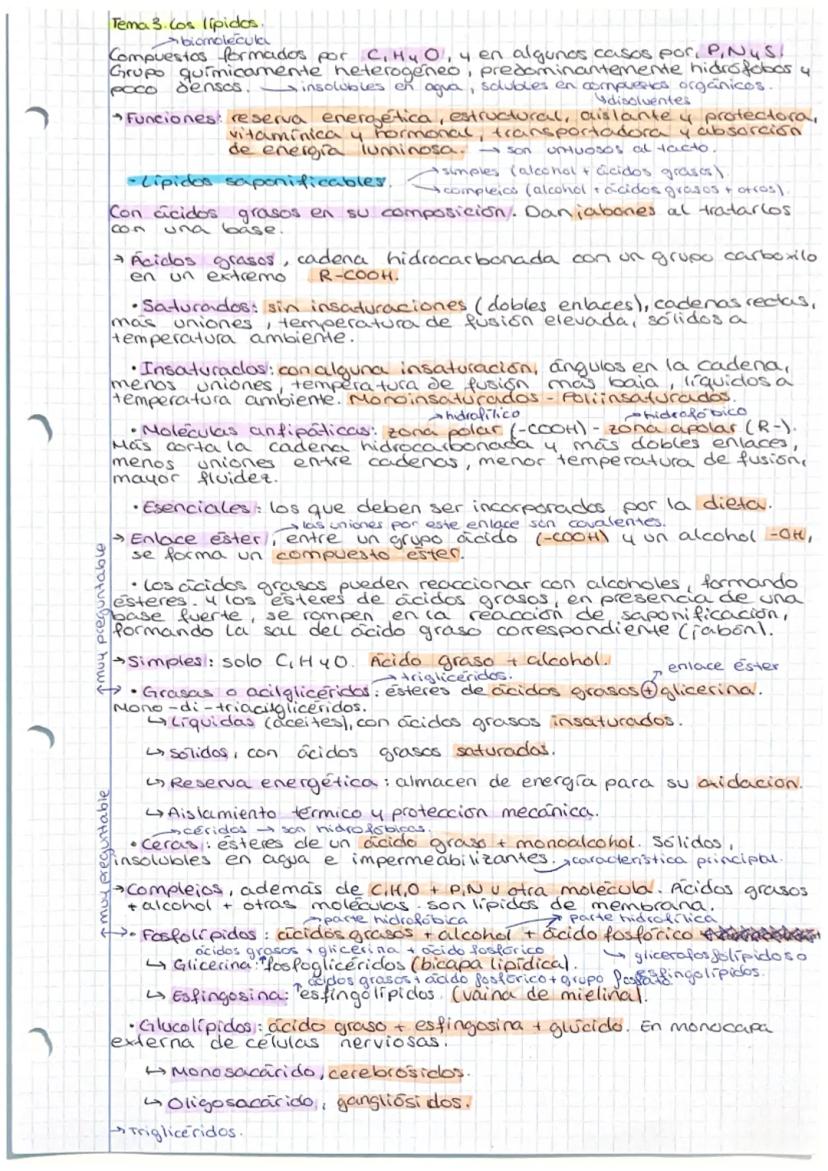 Tema 3. Los lípidos.
→ biomolécula
Compuestos formados por C, H y O, y en algunos casos por, P, N y S.
Grupo químicamente heterogéneo, predominantemente hidrófobos y
poco densos. → insolubles en agua, solubles en compuestos orgánicos.
↳ disolventes
→ Funciones: reserva energética, estructural, aislante y protectora,
vitamínica y hormonal, transportadora y absorción
de energía luminosa. → son untuosos al tacto.
· Lípidos saponificables. → simples (alcohol + ácidos grasos).
→ complejos (alcohol + ácidos grasos + otros).
Con ácidos grasos en su composición. Dan jabones al tratarlos
con una base.
→ Ácidos grasos, cadena hidrocarbonada con un grupo carboxilo
en un extremo R-COOH.
· Saturados: sin insaturaciones (dobles enlaces), cadenas rectas,
más uniones, temperatura de fusión elevada, sólidos a
temperatura ambiente.
· Insaturados: con alguna insaturación, ángulos en la cadena,
menos uniones, temperatura de fusión más baja, líquidos a
temperatura ambiente. Monoinsaturados - Poliinsaturados.
→ hidrofílico → hidrofóbico
· Moléculas anfipáticas: zona polar (-COOH) - zona apolar (R-).
Más corta la cadena hidrocarbonada y más dobles enlaces,
menos uniones entre cadenas, menor temperatura de fusión,
mayor fluidez.
· Esenciales: los que deben ser incorporados por la dieta.
→ las uniones por este enlace son covalentes.
→ Enlace éster, entre un grupo ácido (-COOH) y un alcohol -OH,
se forma un compuesto éster.
· Los ácidos grasos pueden reaccionar con alcoholes, formando
ésteres. y los ésteres de ácidos grasos, en presencia de una
base fuerte, se rompen en la reacción de saponificación,
formando la sal del ácido graso correspondiente (jabón).
→ Simples: solo C, H y O. Ácido graso + alcohol.
→ triglicéridos. ↗ enlace éster
← muy preguntable
· Grasas o acilglicéridos: ésteres de ácidos grasos + glicerina.
Mono-di-triacilglicéridos.
↳ Líquidas (aceites), con ácidos grasos insaturados.
↳ Sólidos, con ácidos grasos saturados.
↳ Reserva energética: almacen de energía para su oxidación.
↳ Aislamiento térmico y protección mecánica.
→ céridos → son hidrofóbicas.
· Ceras: ésteres de un ácido graso + monoalcohol. Sólidos,
insolubles en agua e impermeabilizantes. → característica principal.
→ Complejos, además de C, H, O + P, N u otra molécula. Ácidos grasos
+ alcohol + otras moléculas. son lípidos de membrana.
→ parte hidrofóbica → parte hidrofílica
← muy preguntable
· Fosfolípidos: ácidos grasos + alcohol + ácido fosfórico
ácidos grasos + glicerina + ácido fosfórico ↳ glicerofosfolípidoso
↳ Glicerina: fosfoglicéridos (bicapa lipídica). esfingolípidos.
ácidos grasos + ácido fosfórico + grupo fosfato
↳ Esfingosina: esfingolípidos (vaina de mielina).
· Glucolípidos: ácido graso + esfingosina + glúcido. En monocapa
externa de células nerviosas.
↳ Monosacárido, cerebrósidos.
↳ Oligosacárido, gangliósidos.
→ Triglicéridos.